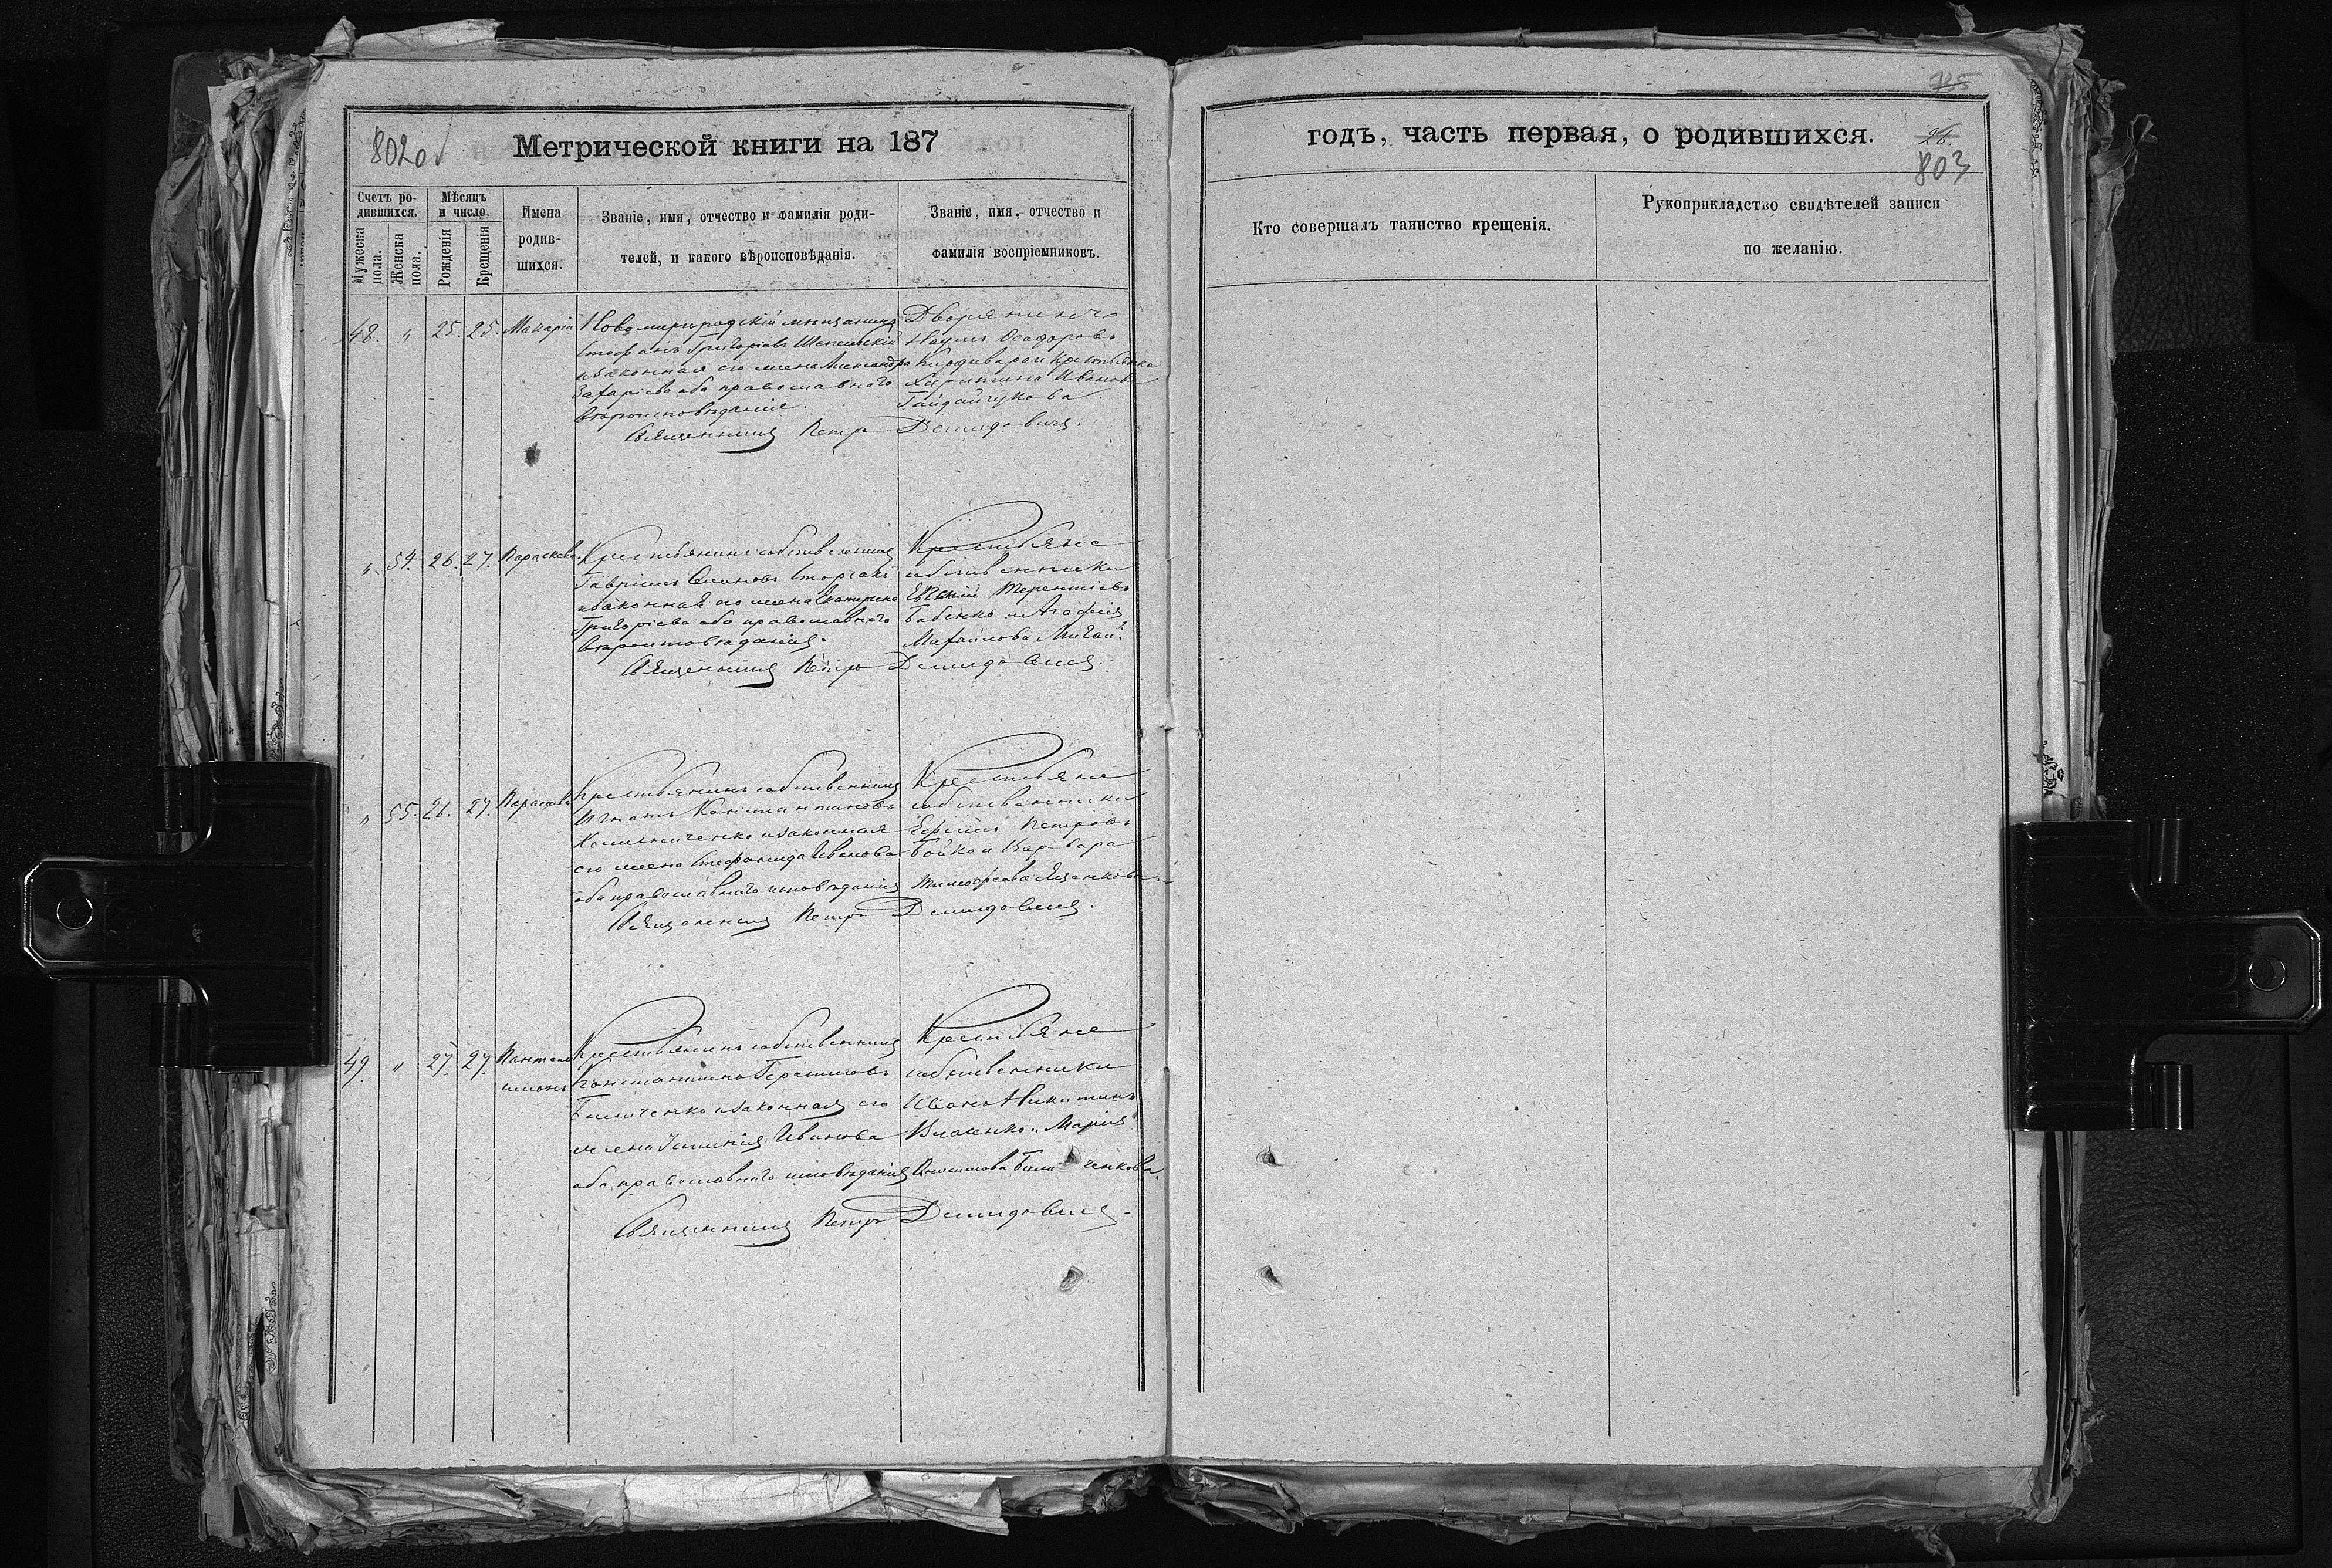 802об
Метрической книги на 187
Счетъ ро-
дившихся.
Мѣсяцъ
и число.
Мужеска
пола.
Женска
пола.
Рожденія
Крещенія
Имена
родив-
шихся.
Званіе, имя, отчество и фамилія роди-
телей, и какого вѣроисповѣданія.
Званіе, имя, отчество и
фамилія воспріемниковъ.
48. " 25. 25. Макарій
Новомиргородскій мѣщанинъ
Стефанъ Григорьевъ
и законная его жена Александра
Захаріева оба православнаго
вѣроисповѣданія.
Дворянинъ
Наумъ Ѳеодоровъ
и крестьянка
Харитина Иванова
Гайдайчукова.
Священникъ Петръ Демидовичъ.
" 54. 26. 27. Параскева
Крестьянинъ собственникъ
Гавріилъ
и законная его жена Екатерина
Григоріева оба православнаго
вѣроисповѣданія.
Крестьяне
собственники
Терентіевъ
Бабенко и Агафія
Михайлова
Священникъ Петръ Демидовичъ.
" 55. 26. 27. Параскева
Крестьянинъ собственникъ
Игнатъ Константиновъ
и законная
его жена Стефанида Иванова
оба православнаго исповѣданія
Крестьяне
собственники
Ефимъ Петровъ
Бойко и Варвара
Тимофеева Яценкова.
Священникъ Петръ Демидовичъ.
49. " 27. 27. Пантеле-
имонъ
Крестьянинъ собственникъ
Константинъ Герасимовъ
Биличенко и законная его
жена Иванова
оба православнаго исповѣданія
Крестьяне
собственники
Иванъ Никитинъ
Власенко и Марія
Биличенкова.
Священникъ Петръ Демидовичъ.
125
годъ, часть первая, о родившихся.
26.
803
Кто совершалъ таинство крещенія.
Рукоприкладство свидѣтелей записи
по желанію.